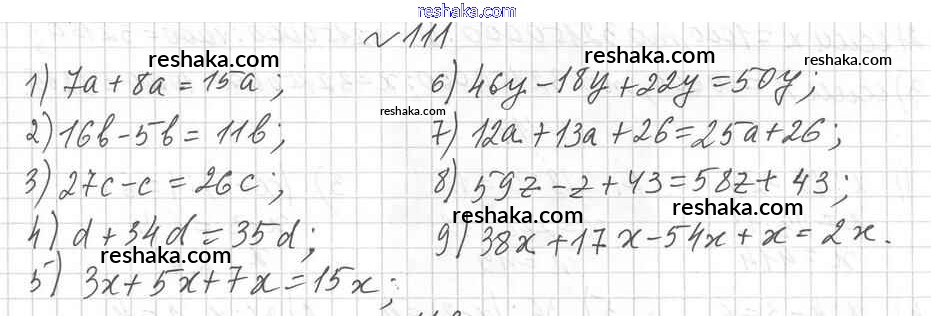 reshaka.com
№ 111
reshaka.com
reshaka.com
1) 7a + 8a = 15a;
2) 16b - 5b = 11b;
3) 27c - c = 26c;
reshaka.com
4) d + 34d = 35d;
reshaka.com
5) 3x + 5x + 7x = 15x;
6) 46y - 18y + 22y = 50y;
reshaka.com
7) 12a + 13a + 26 = 25a + 26;
reshaka.com
8) 59z - z + 43 = 58z + 43;
reshaka.com
reshaka.com
9) 38x + 17x - 54x + x = 2x.